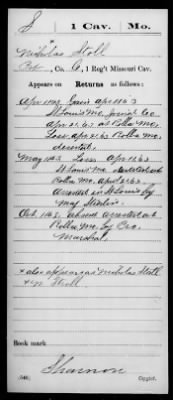 S | 1 Cav. | Mo.
Nicholas Stoll
Pvt, Co. C, 1 Reg't Missouri Cav.
Appears on Returns as follows:
April 1863 Gain Apr 1863
St Louis Mo.
Apr 21, 63 at Rolla Mo.
Loss Apr 21 63 Rolla Mo.
desert.
May 1863 Loss Apr 1863
St Louis Mo. deserted at
Rolla Mo.
Arrested in St Louis by
Maj
Oct. 1863. absent arrested at
Rolla Mo. by Pro.
Marshal.
+ also appears as Nicholas Stoll
+ N Stroll
Book mark:
Shannon
(546) Copyist.